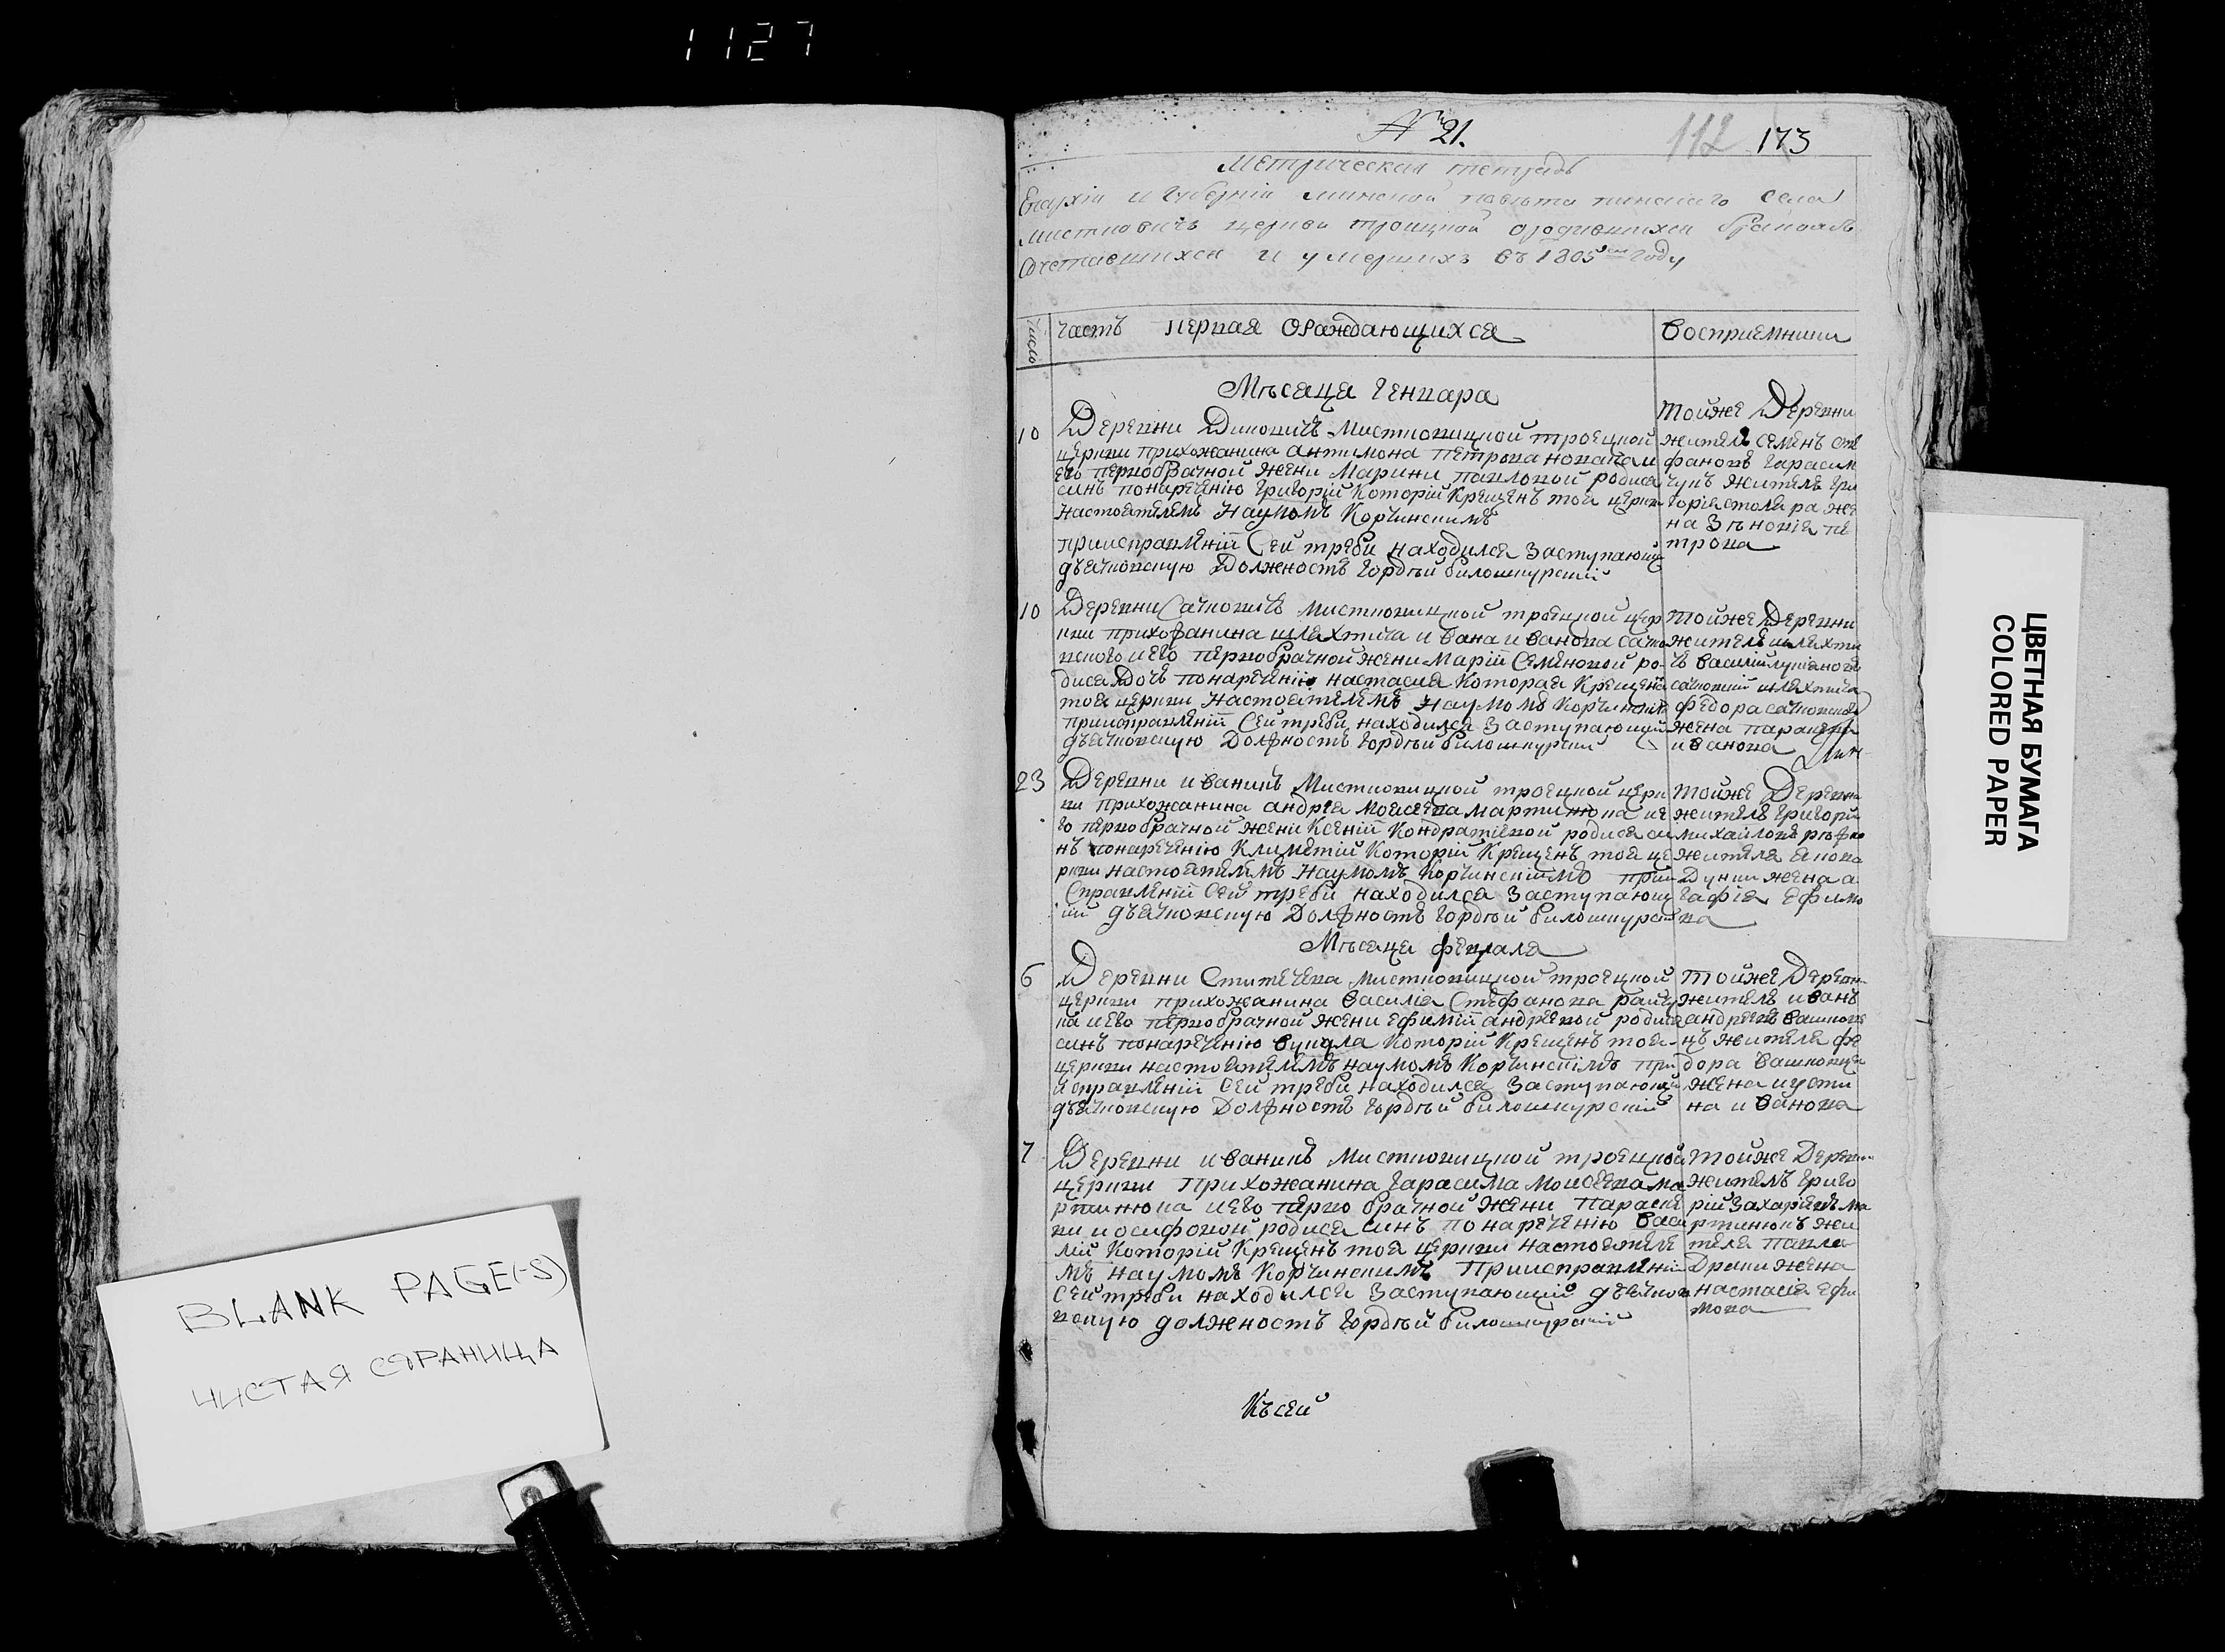 1127
BLANK PAGE(-S)
ЧИСТАЯ СТРАНИЦА
№ 21.
112 173
Метрическая тетрадь
Епархіи и Губерніи минской повѣта пинскаго села
мистковичъ церкви троицкой ородившихся бракомъ
Сочетавшихся и умершихъ въ 1805 году
Число
часть первая Ораждающихся
Восприемники
Мѣсяца Генвара
10
Деревни Диковичъ Мистковицкой троецкой
церкви прихожанина антимона петрова новака и
его первобрачной жени Марини павловой родися
синъ понаречѣнію григорій которій крещенъ тоя церкви
настоятелемъ Наумомъ Корчинскимъ
приисправленій Сей треби находился Заступающій
дьячковскую Должность Гордѣй билошкурскій
Тойже Деревни
житель семенъ сте
фановъ гарасим
чукъ жителя гри
горія столяра же
на Зѣновія пе
трова
10
Деревни Сачковичъ мистковицкой троецкой цер
кви прихожанина шляхтича ивана иванова сачко
вского и его первобрачной жени Марій Семеновой ро-
дися Дочь понаречѣнію настасия Которая Крещена
тоя церкви настоятелемъ Наумомъ Корчинскимъ
приисправленій Сей треби находился Заступающій
дьячковскую Должность Гордѣй билошкурскій
тойже Деревни
житель шляхти
чъ василий лукяновъ
сачковскій шляхтича
федора сачковского
жена параскева
иванова
23
Деревни иваникъ Мистковицкой троецкой церк
ви прихожанина андрея моисеева мартинюка и е
го первобрачной жени Ксеній Кондратіевой родися си
нъ понаречѣнію Климетій Которій Крещенъ тоя це
ркви настоятелемъ Наумомъ Корчинскіимъ прии
Справленій Сей треби находился Заступающ
ій дьячковскую Должность Гордѣй билошкурскій
тойже Деревни
житель григорій
михайловъ
жителя
жена а
гафія Ефимо
ва
Мѣсяца феврала
6
Деревни Ститечева мистковицкой троецкой
церкви прихожанина Василія Стефанова райчу
ка и его первобрачной жени ефимій андреевой родися
синъ понаречѣнію вукула Которій Крещенъ тоя
церкви настоятелемъ наумомъ Корчинскіимъ при
исправленій Сей треби находился Заступающій
дьячковскую Должность Гордѣй билошкурскій
тойже Деревн
житель иванъ
андреевъ вашкове
цъ жителя фе
дора вашковца
жена иусти
на иванова
7
Деревни иваникъ Мистковицкой троецкой
церкви прихожанина гарасима моисеева ма
ртинюка и его перво брачной жени параске
ви иосифовой родися синъ понаречѣнію Васи
лій Которій Крещенъ тоя церкви настоятеле
мъ наумомъ Корчинскимъ Приисправленій
Сей треби находился Заступающій дьячко
вскую должность Гордѣй билошкурскій
тойже Деревни
житель григо
рій захаріевъ ма
ртинюкъ жи
теля павла
Драки жена
настасія ефи
мова
Къ сей
ЦВЕТНАЯ БУМАГА
COLORED PAPER